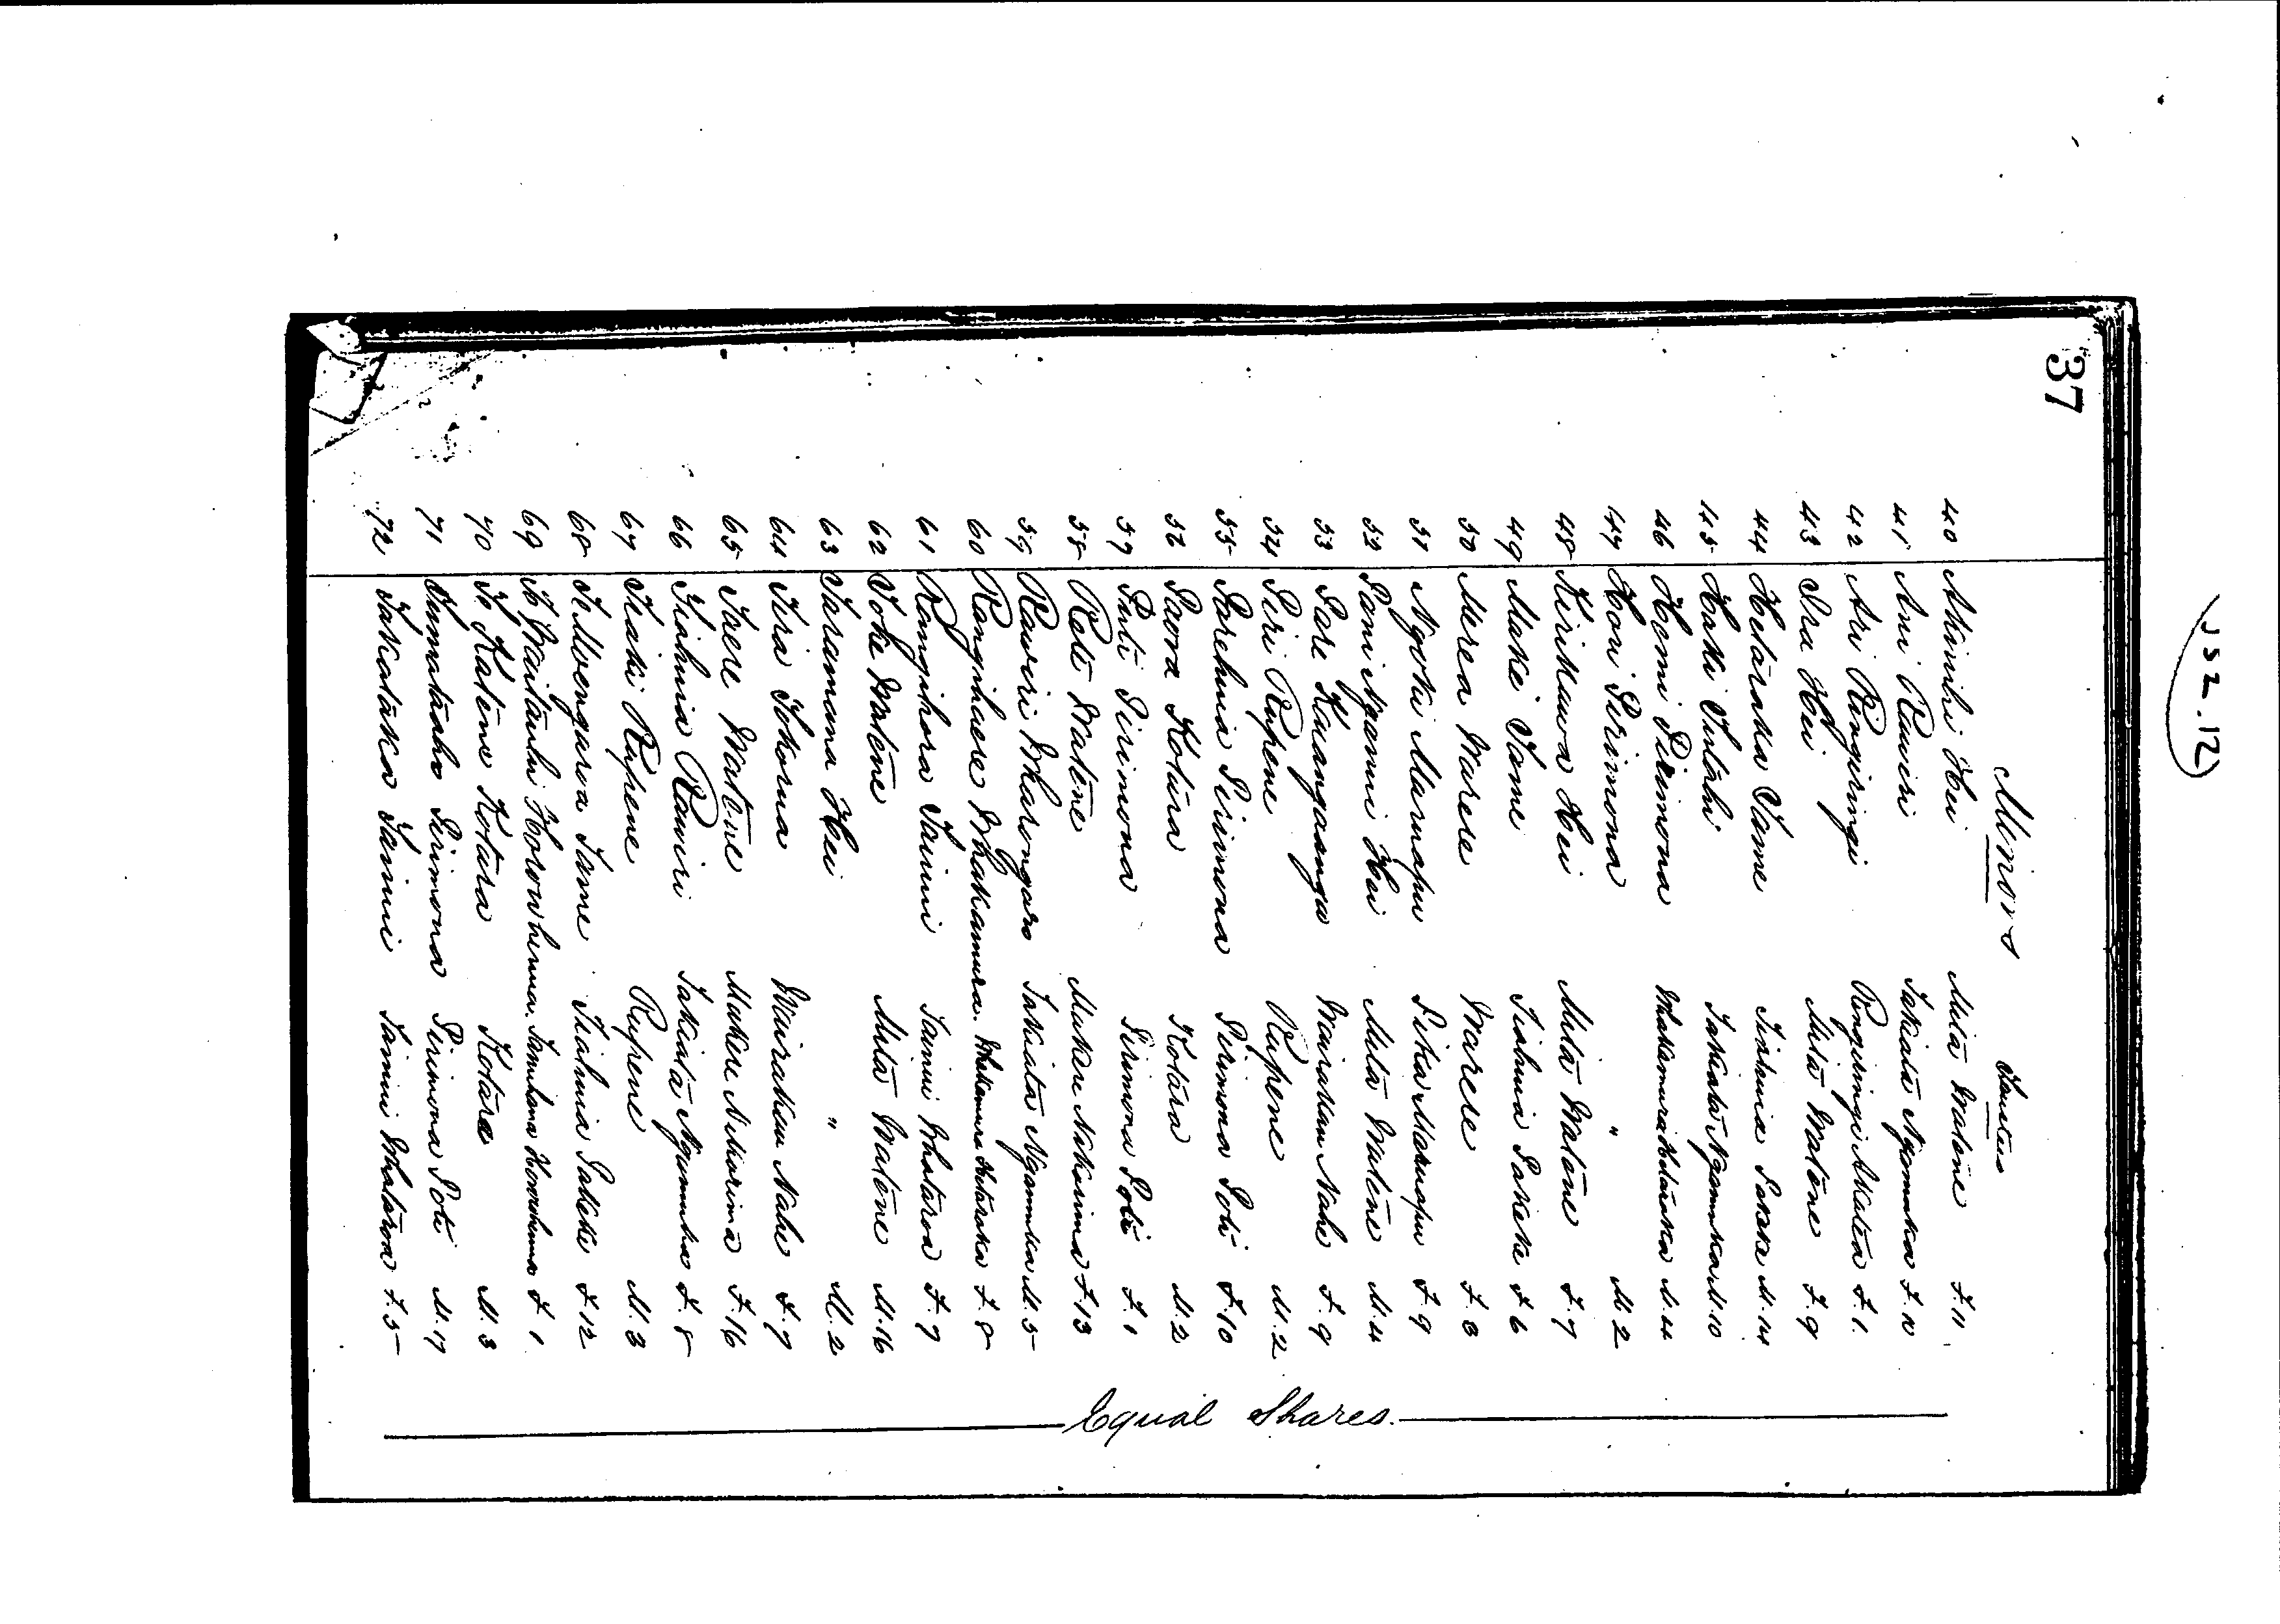 J52.12
37
Minors Trustees
40 Akinihi Hei Mita Watene F. 11
41 Ani Rawiri Takiata Ngamuka F. 12
42 Ari Rangiringi Rangiringi Akatea F. 1.
43 Ira Hei Mita Watene F. 9
44 Hetaraka Tame Tiahuia Pakeke M. 14
45 Haki Takiata Ngamuka M. 10
46 Hemi Pirimona Whakamura Hetaraka M. 4
47 Hori Pirimona " M 2
48 Kirikauwa Hei Mita Watene F. 7
49 Make Tame Tiahuia Pakeke F 6
50 Merea Warere Warere F. 8
51 Ngotu Marnapu Pika Marnapu F. 9
52 Pani Ngamu Hei Mita Watene M. 4
53 Pare Kauangaanga Wairakau Nahe F. 9
54 Piri Rupene Rupene M. 2
55 Parehuia Pirimona Pirimona Poti F. 10
56 Paora Kotara Kotara M. 2
57 Puti Pirimona Pirimona Poti F. 1
58 Reti Watene Makere Nikorima F. 13
59 Rawiri Wharongaro Takiata Ngamuka M. 5
60 Rangihaere Whakamura. Whakamura Hetaraka F. 8
61 Rangihora Tainui Tainui Whataroa F. 7
62 Toke Watene Mita Watene M. 16
63 Taramana Hei " M. 2
64 Tira Tokorua Wairakau Nahe F. 7
65 Taere Watene Makere Nikorima F. 16
66 Tiahuia Rawiri Takiata Ngamuka F. 8
67 Tiaki Rupene Rupene M. 3
68 Te Mwengarva Tame Tiahuia Pakeke F. 12
69 Te Waitauhi Horowhenua. Tamihana Horowhenua F 1
70 Te Katene Kotara Kotara M. 3
71 Tumatauho Pirimona Pirimona Poti M. 17
72 Takataka Tainui Tainui Whataroa F. 5
Equal Shares.